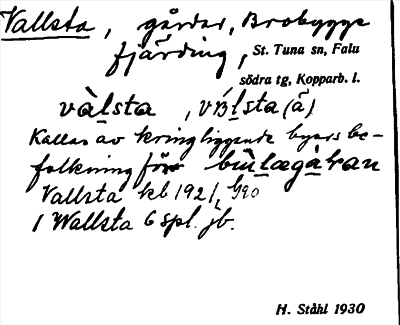 Vallsta, gårdar, Brobygge
fjärding, St. Tuna sn, Falu
södra tg, Kopparb. l.
vàlsta, vál̲sta (ä)
Kallas av kringliggande byars be-
folkning för bu̇l̲ægàran
Vallsta kb 1921,
1 Wallsta 6 spl. jb.
H. Ståhl 1930